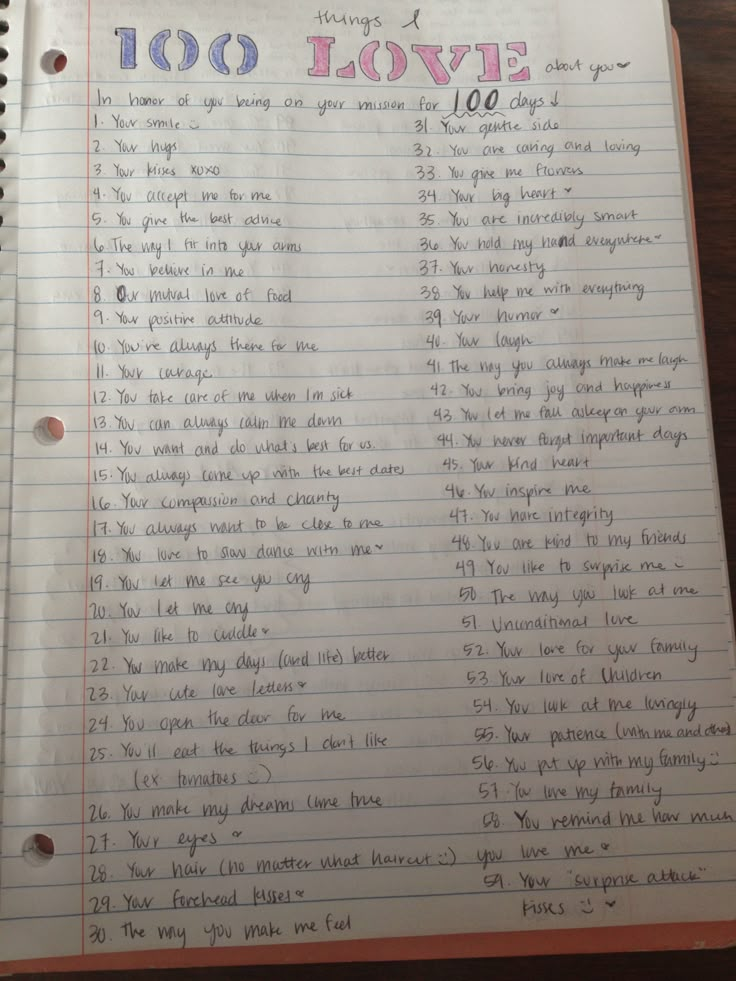 things I
100 LOVE about you
In honor of you being on your mission for 100 days ↓
1. Your smile :)
2. Your hugs
3. Your kisses xoxo
4. You accept me for me
5. You give the best advice
6. The way I fit into your arms
7. You believe in me
8. Our mutual love of food
9. Your positive attitude
10. You're always there for me
11. Your courage
12. You take care of me when I'm sick
13. You can always calm me down
14. You want and do what's best for us.
15. You always come up with the best dates
16. Your compassion and charity
17. You always want to be close to me
18. You love to slow dance with me ♥
19. You let me see you cry
20. You let me cry
21. You like to cuddle ♥
22. You make my days (and life) better
23. Your cute love letters ♥
24. You open the door for me
25. You'll eat the things I don't like
(ex tomatoes :))
26. You make my dreams come true
27. Your eyes ♥
28. Your hair (no matter what haircut :))
29. Your forehead kisses ♥
30. The way you make me feel
31. Your gentle side
32. You are caring and loving
33. You give me flowers
34. Your big heart ♥
35. You are incredibly smart
36. You hold my hand everywhere ♥
37. Your honesty
38. You help me with everything
39. Your humor ♥
40. Your laugh
41. The way you always make me laugh
42. You bring joy and happiness
43. You let me fall asleep on your arm
44. You never forget important days
45. Your kind heart
46. You inspire me
47. You have integrity
48. You are kind to my friends
49. You like to surprise me :)
50. The way you look at me
51. Unconditional love
52. Your love for your family
53. Your love of Children
54. You look at me lovingly
55. Your patience (with me and others)
56. You put up with my family :)
57. You love my family
58. You remind me how much
you love me ♥
59. Your "surprise attack"
kisses :) ♥